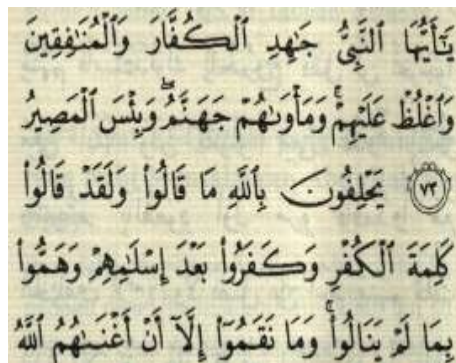 يَـٰٓأَيُّهَا ٱلنَّبِىُّ جَـٰهِدِ ٱلْكُفَّارَ وَٱلْمُنَـٰفِقِينَ
وَٱغْلُظْ عَلَيْهِمْ ۚ وَمَأْوَىٰهُمْ جَهَنَّمُ ۖ وَبِئْسَ ٱلْمَصِيرُ
٧٣ يَحْلِفُونَ بِٱللَّهِ مَا قَالُوا۟ وَلَقَدْ قَالُوا۟
كَلِمَةَ ٱلْكُفْرِ وَكَفَرُوا۟ بَعْدَ إِسْلَـٰمِهِمْ وَهَمُّوا۟
بِمَا لَمْ يَنَالُوا۟ ۚ وَمَا نَقَمُوٓا۟ إِلَّآ أَنْ أَغْنَىٰهُمُ ٱللَّهُ